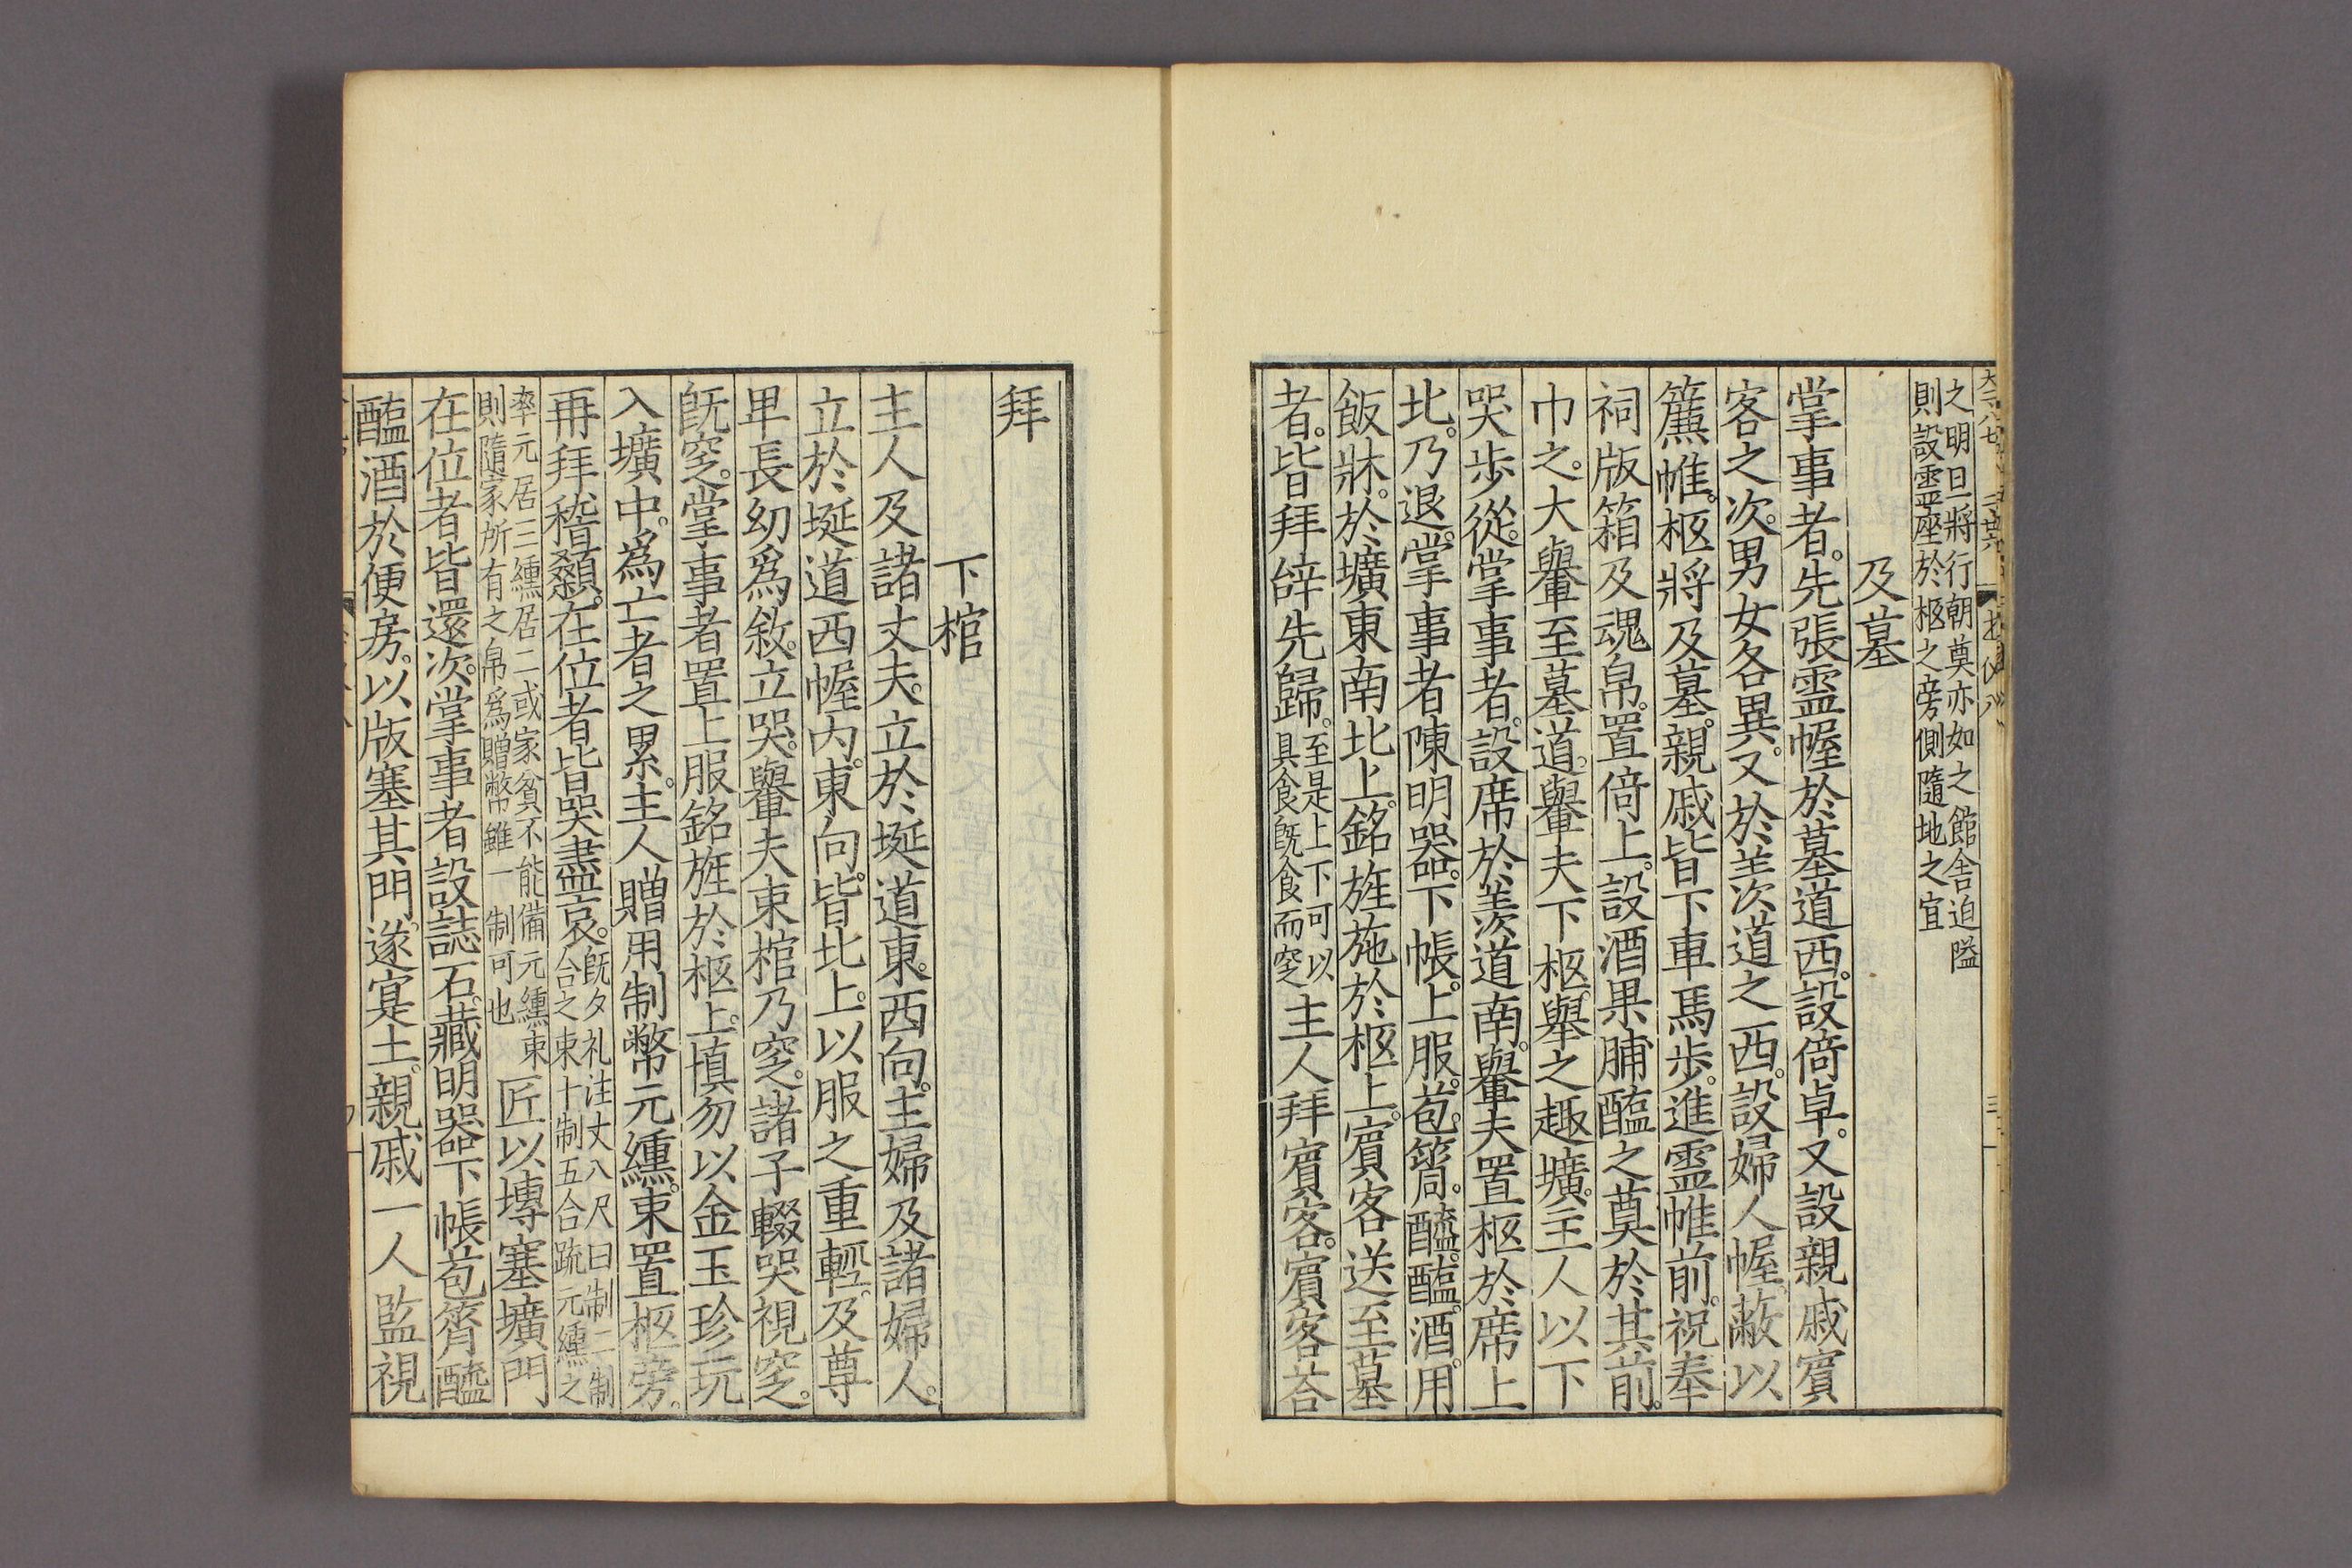 之明旦將行朝奠亦如之館舍迫隘
則設靈座於柩之旁側隨地之宜
及墓
掌事者。先張靈幄於墓道西。設倚卓。又設親戚賓
客之次。男女各異。又於羨次道之西。設婦人幄。蔽以
簾帷。柩將及墓。親戚皆下車馬步。進靈帷前。祝奉
祠版箱及魂帛。置倚上。設酒果脯醢之奠於其前。
巾之。大轝至墓道。轝夫下柩。舉之趣壙。主人以下
哭步從。掌事者。設席於羨道南。轝夫置柩於席上
北。乃退。掌事者陳明器。下帳。上服。苞。筲。醯。醢。酒。用
飯牀。於壙東南北上。銘旌施於柩上。賓客送至墓
者。皆拜辞先歸。至是上下可以
具食既食而窆
主人拜賓客。賓客荅
拜
下棺
主人及諸丈夫。立於埏道東。西向。主婦及諸婦人。
立於埏道西幄内。東向。皆北上。以服之重輕。及尊
卑長幼爲敘。立哭。轝夫束棺乃窆。諸子輟哭視窆。
既窆。掌事者置上服銘旌於柩上。慎勿以金玉珍玩
入壙中。爲亡者之累。主人贈用制幣元纁。束置柩旁。
再拜稽顙。在位者皆哭盡哀。既夕礼注丈八尺曰制二制
合之束十制五合䟽元纁之
率元居三纁居二或家貧不能備元纁束
則隨家所有之帛爲贈幣雖一制可也
匠以塼塞壙門
在位者皆還次。掌事者設誌石。藏明器下帳苞筲醯
醢酒於便房。以版塞其門。遂寔土。親戚一人監視